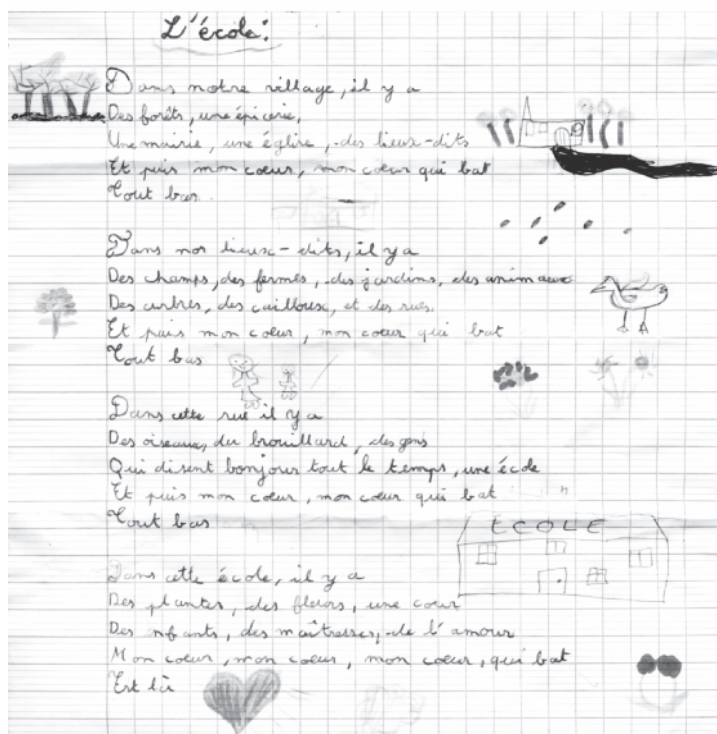 L'école:
Dans notre village, il y a
Des forêts, une épicerie,
Une mairie, une église, des lieux-dits
Et puis mon coeur, mon coeur qui bat
Tout bas.
Dans nos lieux-dits, il y a
Des champs, des fermes, des jardins, des animaux
Des arbres, des cailloux, et des rues.
Et puis mon coeur, mon coeur qui bat
Tout bas
Dans cette rue il y a
Des oiseaux, du brouillard, des gens
Qui disent bonjour tout le temps, une école
Et puis mon coeur, mon coeur qui bat
Tout bas
ECOLE
Dans cette école, il y a
Des plantes, des fleurs, une cour
Des enfants, des maîtresses, de l'amour
Mon coeur, mon coeur, mon coeur, qui bat
Est là